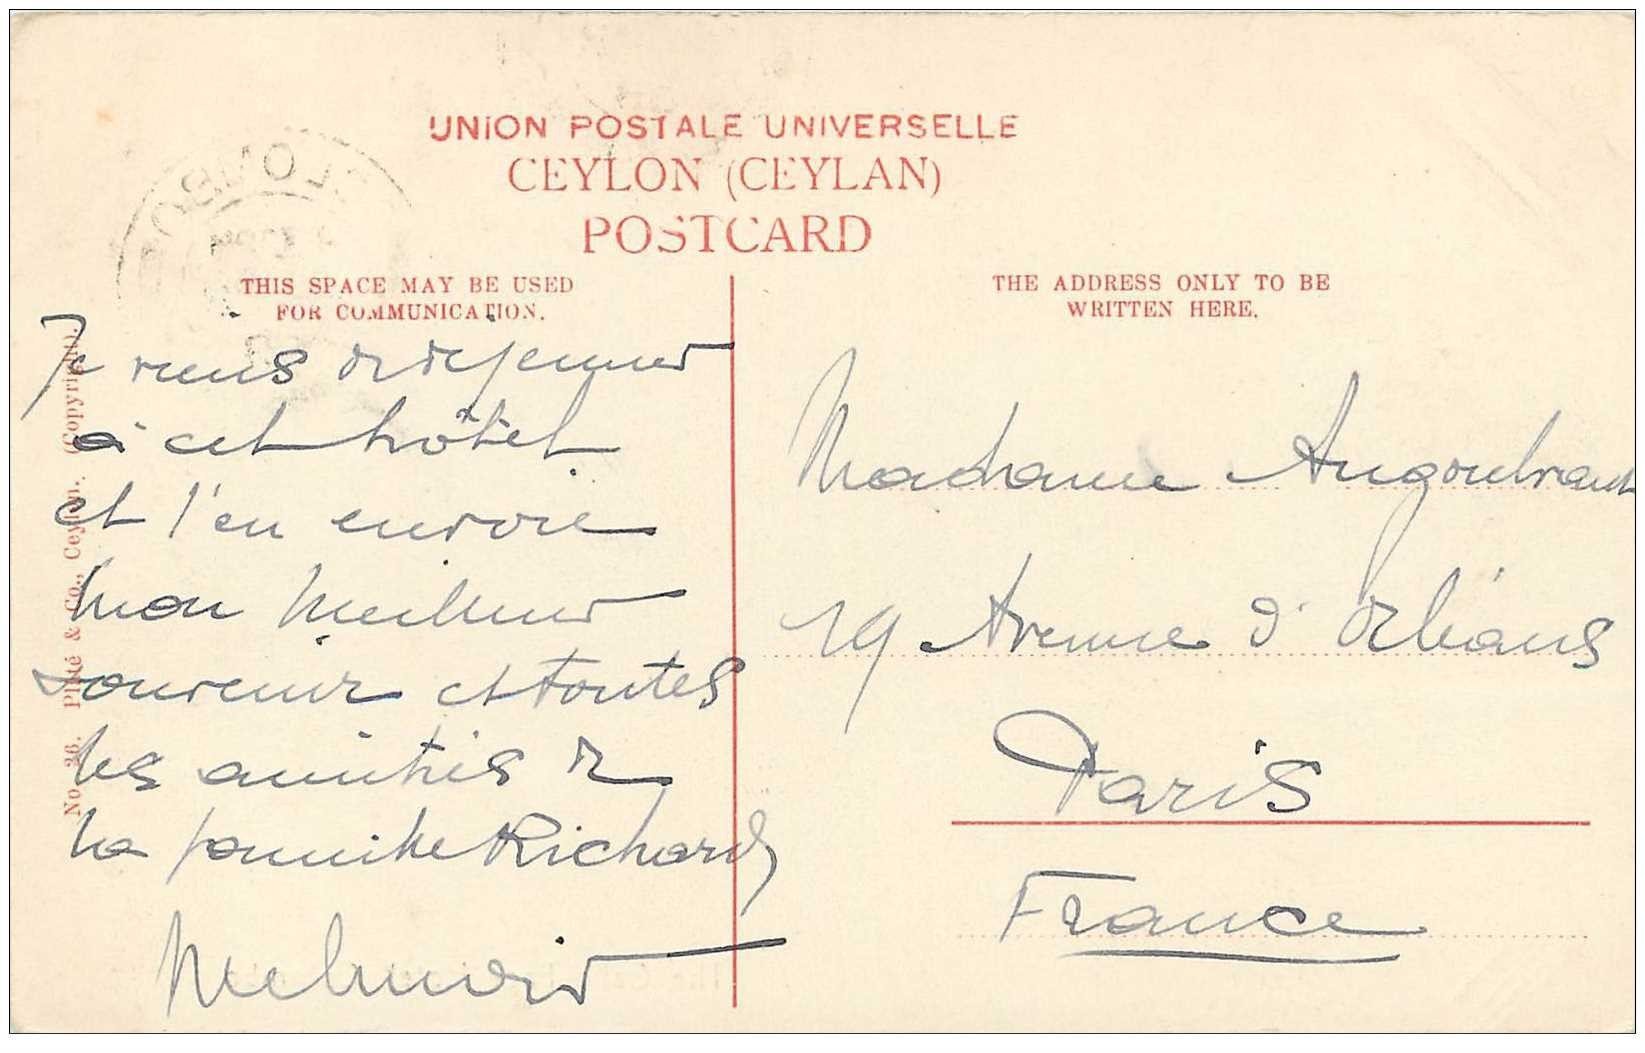 UNION POSTALE UNIVERSELLE
CEYLON (CEYLAN)
POSTCARD
THIS SPACE MAY BE USED
FOR COMMUNICATION.
THE ADDRESS ONLY TO BE
WRITTEN HERE.
Je viens de déjeuner
à cet hôtel
et t'en envoie
mon meilleur
souvenir et toutes
les amitiés de
la famille Richard
Madame
19 Avenue d'Orléans
Paris
France
No. 26. Plâté & Co., Ceylon. (Copyright).
COLOMBO